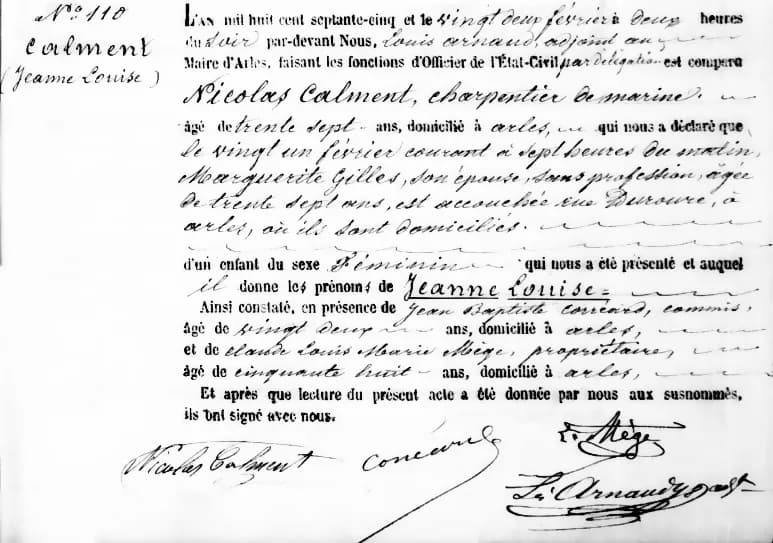 N.º 110
Calment
(Jeanne Louise)
L'AN mil huit cent septante-cinq et le vingt deux février à deux heures
du soir par-devant Nous, Louis arnaud, adjoint au
Maire d'Arles, faisant les fonctions d'Officier de l'État-Civil par délégation est comparu
Nicolas Calment, charpentier de marine
âgé de trente sept ans, domicilié à arles, qui nous a déclaré que
le vingt un février courant à sept heures du matin,
Marguerite Gilles, son épouse, sans profession, âgée
de trente sept ans, est accouchée rue Duroure, à
arles, où ils sont domiciliés.
d'un enfant du sexe Féminin qui nous a été présenté et auquel
il donne les prénoms de Jeanne Louise=
Ainsi constaté, en présence de Jean Baptiste Corréard, commis,
âgé de vingt deux ans, domicilié à arles,
et de claude Louis Marie Mège, propriétaire,
âgé de cinquante huit ans, domicilié à arles,
Et après que lecture du présent acte a été donnée par nous aux susnommés,
ils ont signé avec nous.
Nicolas Calment
L. Mège
Ls Arnaud